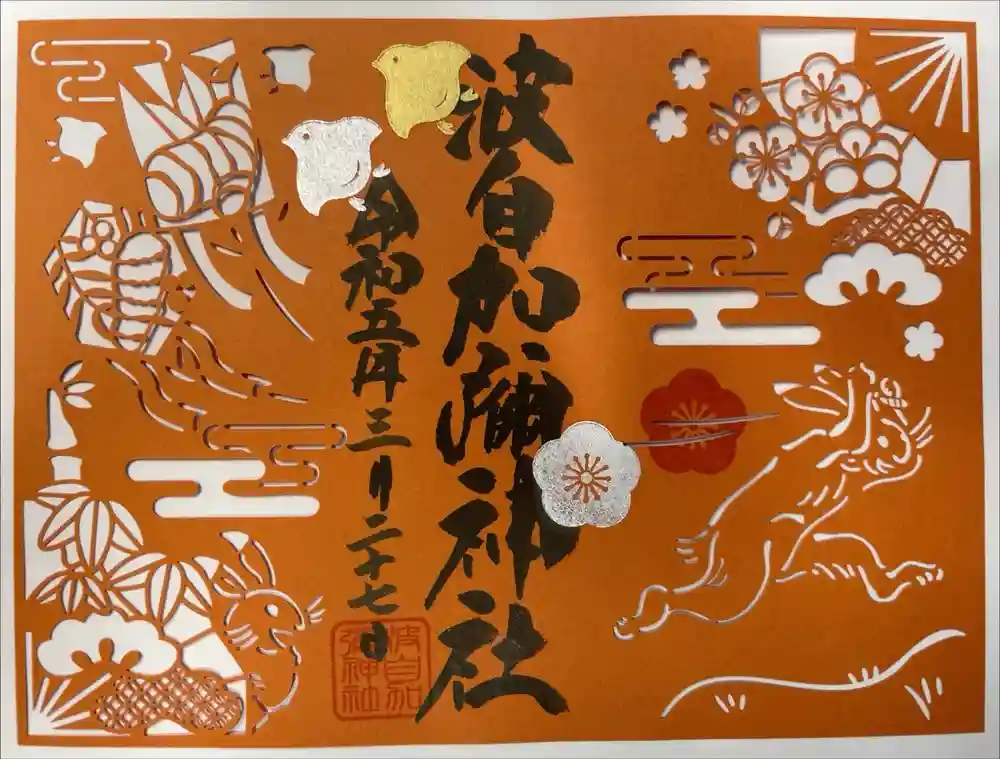 波自加彌神社
令和五年三月二十七日
波自加
弥神社